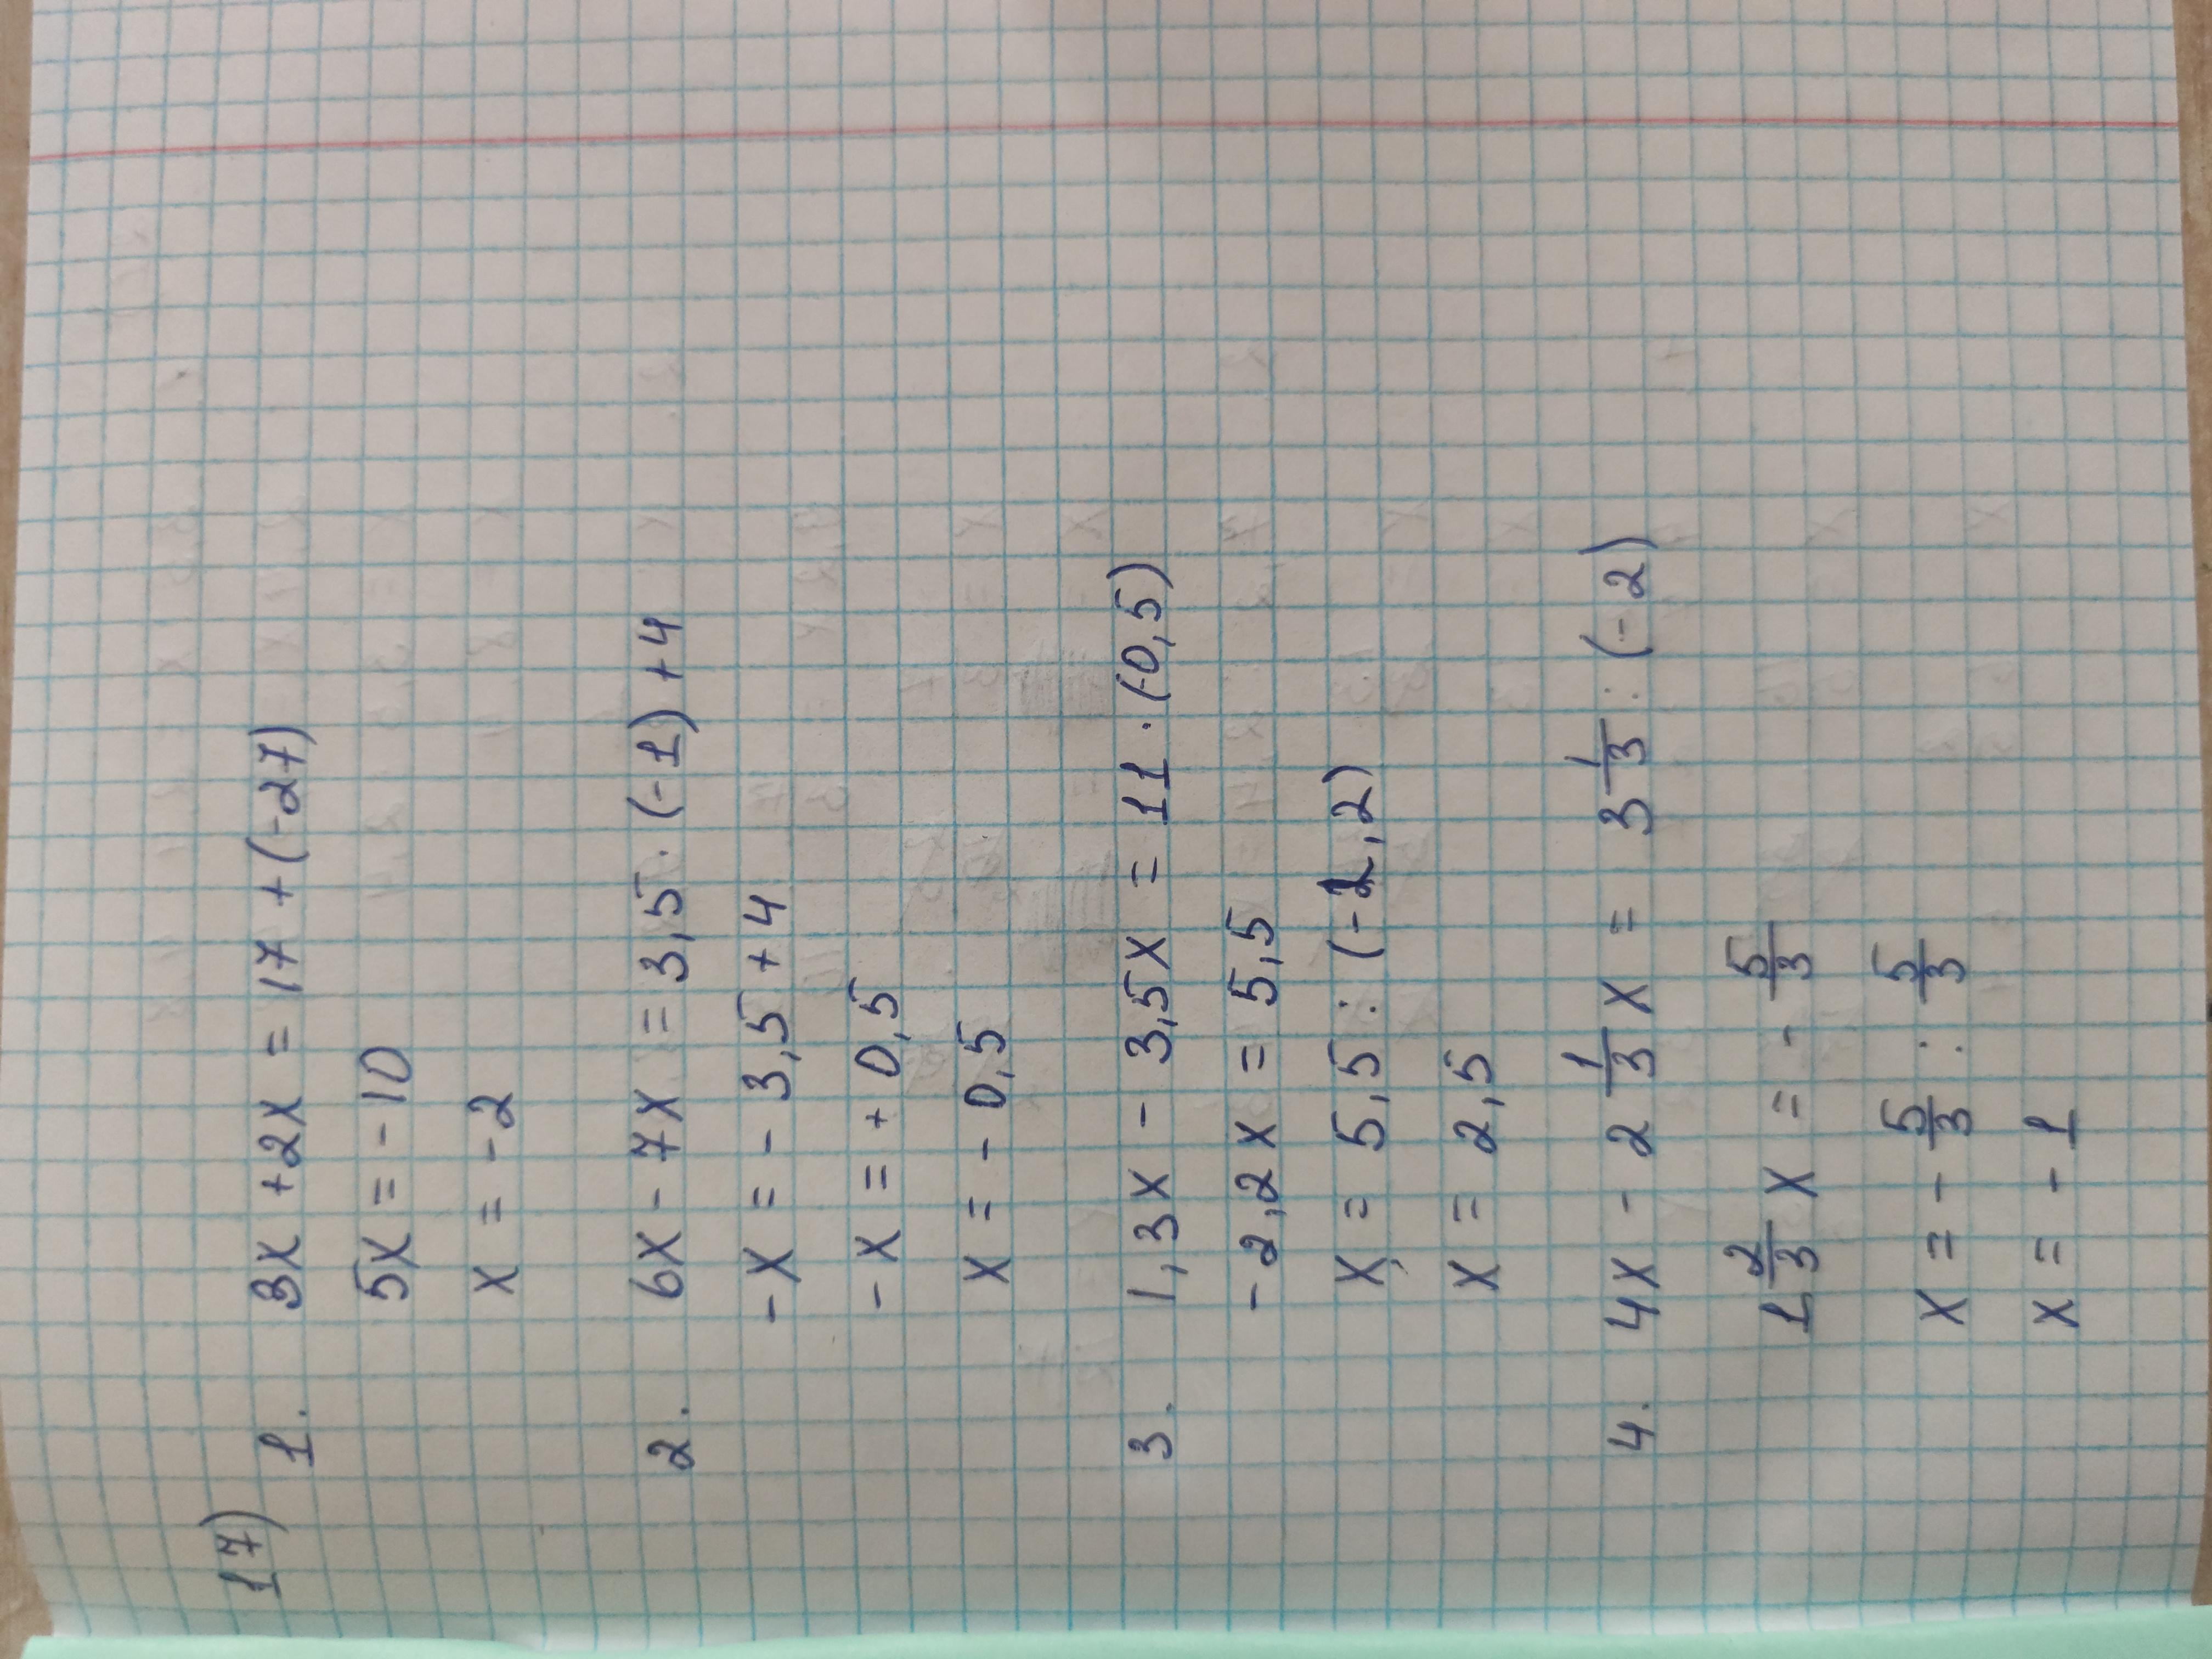 17)
1. 3x+2x = 17+(-27)
5x = -10
x = -2
2. 6x - 7x = 3,5 · (-1) + 4
-x = - 3,5 + 4
-x = + 0,5
x = - 0,5
3. 1,3x - 3,5x = 11 · (-0,5)
-2,2x = 5,5
x = 5,5 : (-2,2)
x = 2,5
4. 4x - 2 1/3 x = 3 1/3 : (-2)
1 2/3 x = - 5/3
x = - 5/3 : 5/3
x = - 1